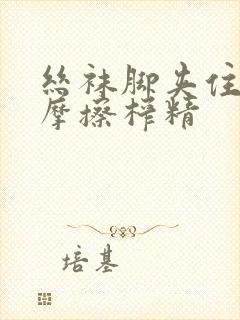 丝袜脚夹住
摩擦榨精
培基